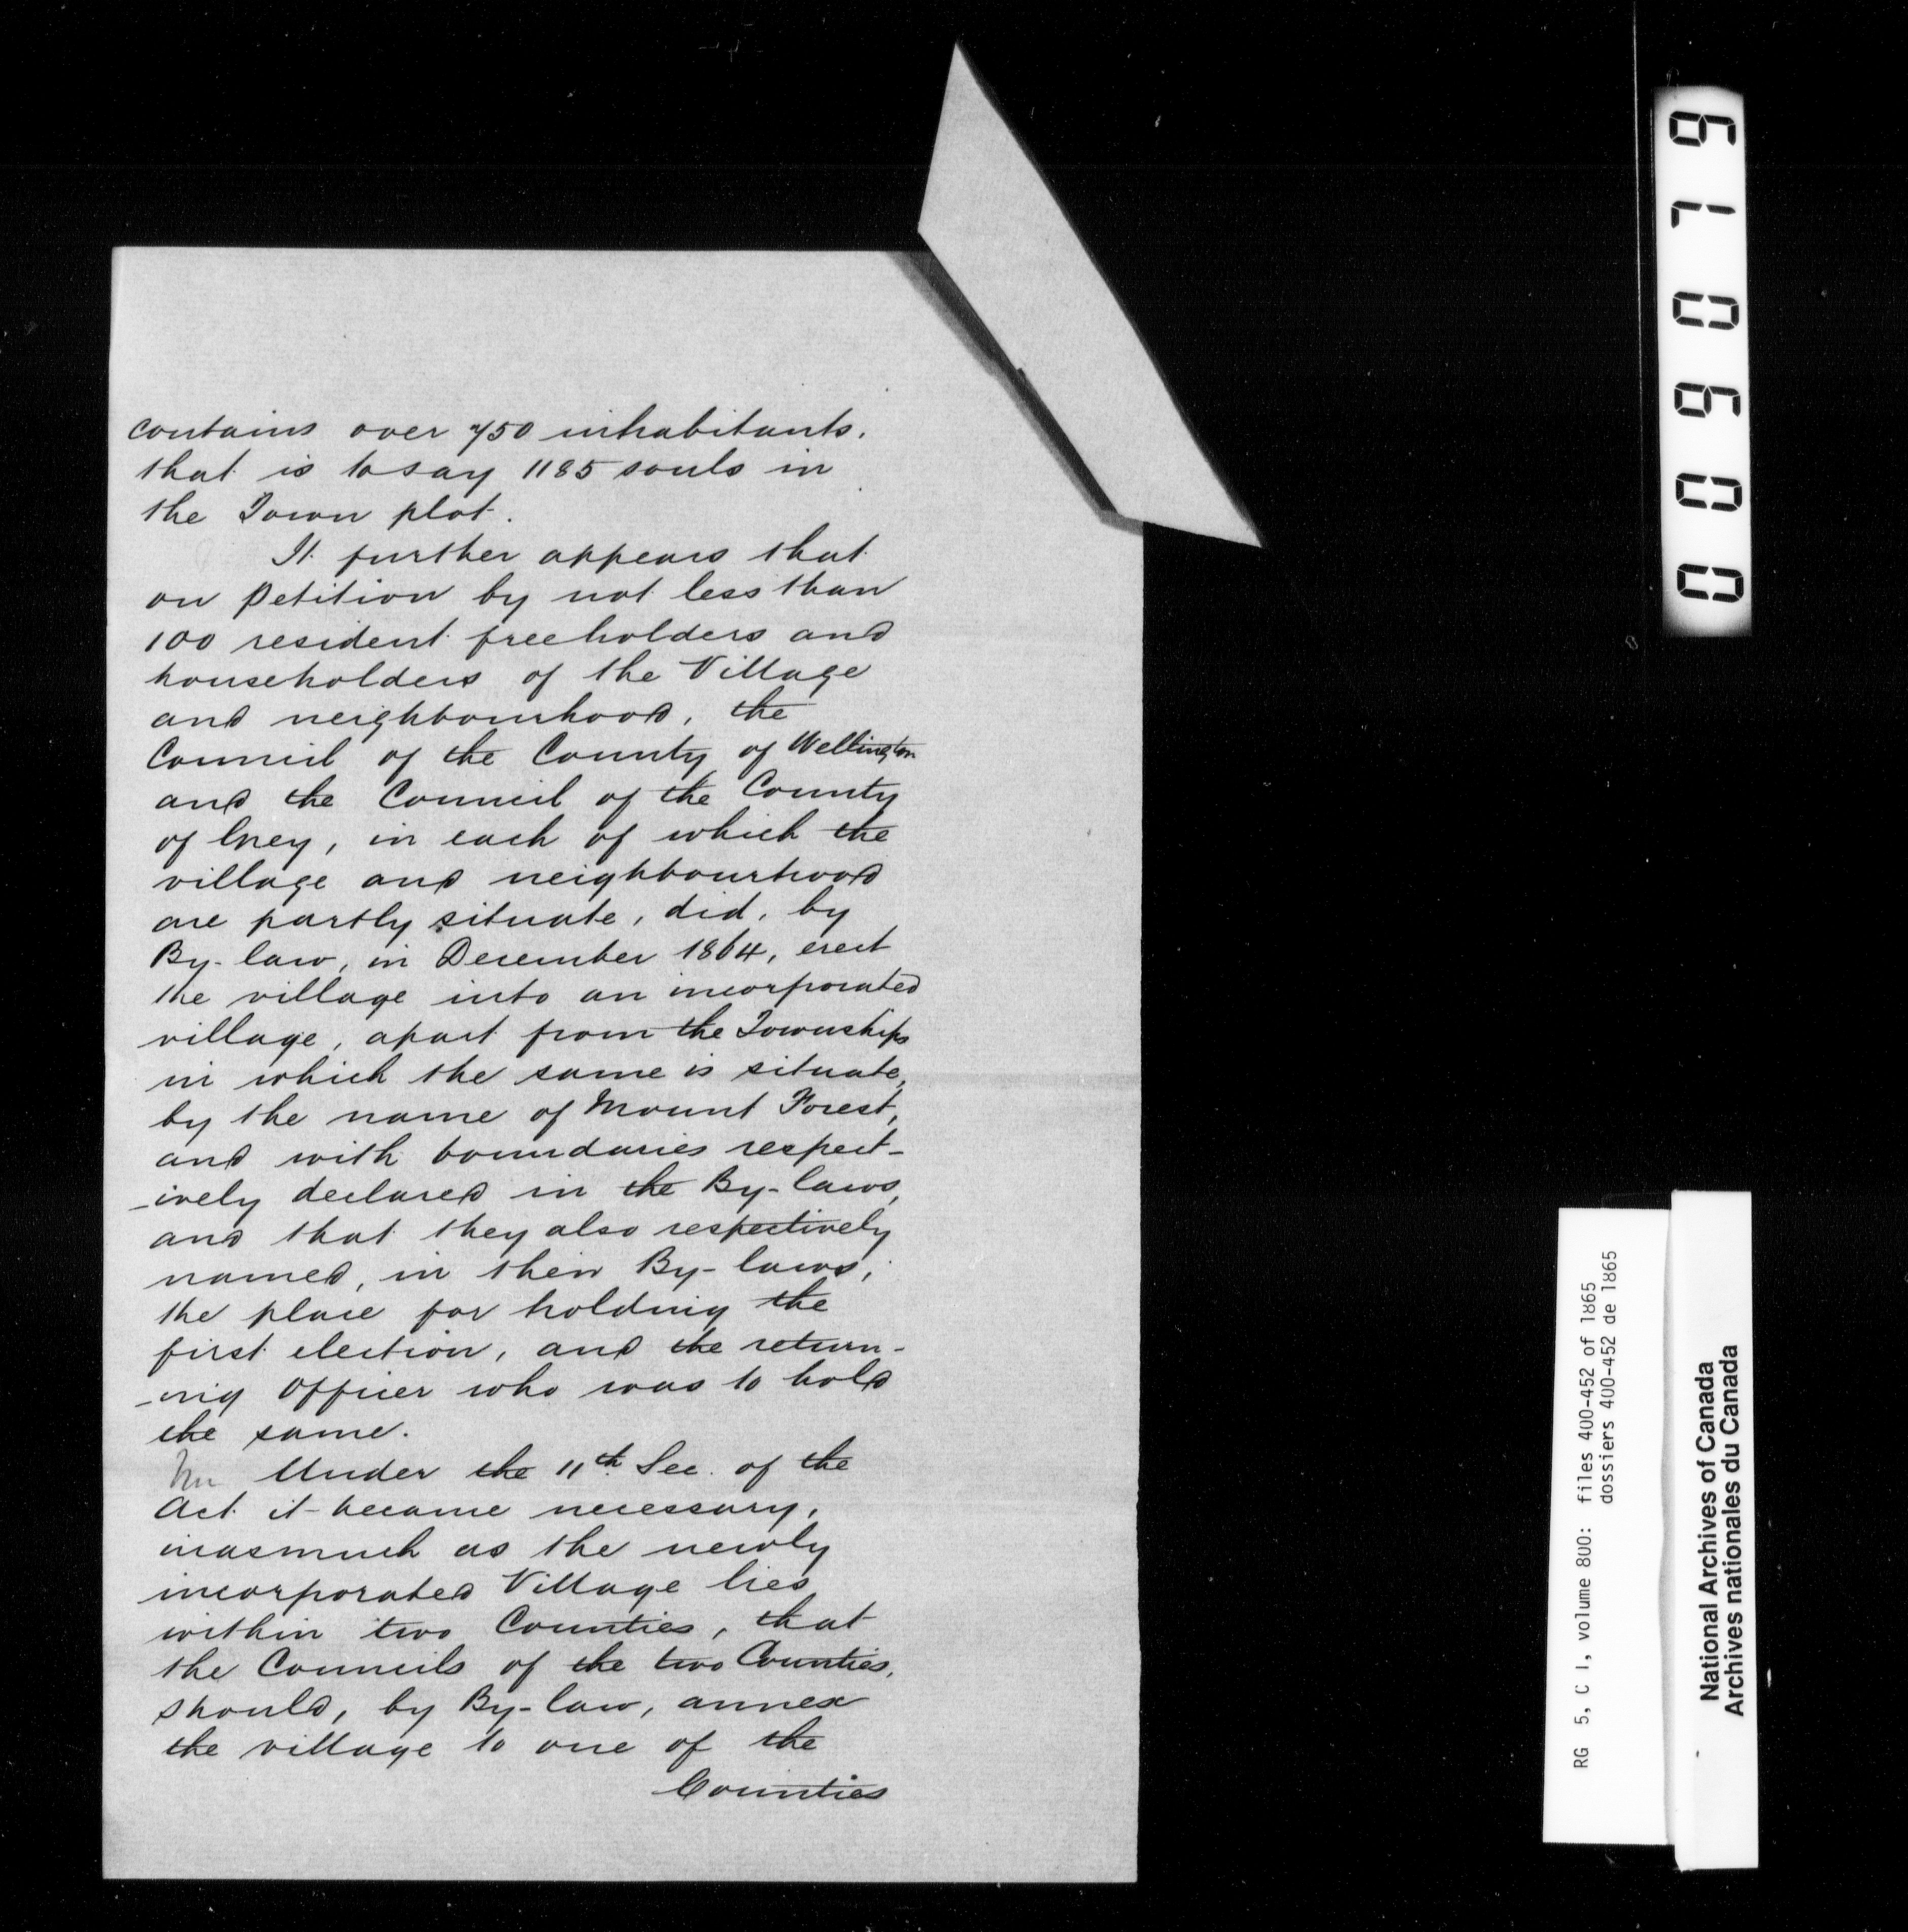 contains over 750 inhabitants,
that is to say 1185 souls in
the Town plot.
It further appears that
on Petition by not less than
100 resident freeholders and
householders of the Village
and neighbourhood, the
Council of the County of Wellington
and the Council of the County
of Grey, in each of which the
village and neighbourhood
are partly situate, did, by
By-law, in December 1864, erect
the village into an incorporated
village, apart from the Townships
in which the same is situate,
by the name of Mount Forest,
and with boundaries respect-
-ively declared in the By-laws,
and that they also respectively
named, in their By-laws,
the place for holding the
first election, and the return-
-ing Officer who was to hold
the same.
Under the 11th Sec. of the
Act it became necessary,
inasmuch as the newly
incorporated Village lies
within two Counties, that
the Councils of the two Counties,
should, by By-law, annex
the village to one of the
Counties
000 9 0 7 9
RG 5, C 1, volume 800: files 400-452 of 1865
dossiers 400-452 de 1865
National Archives of Canada
Archives nationales du Canada